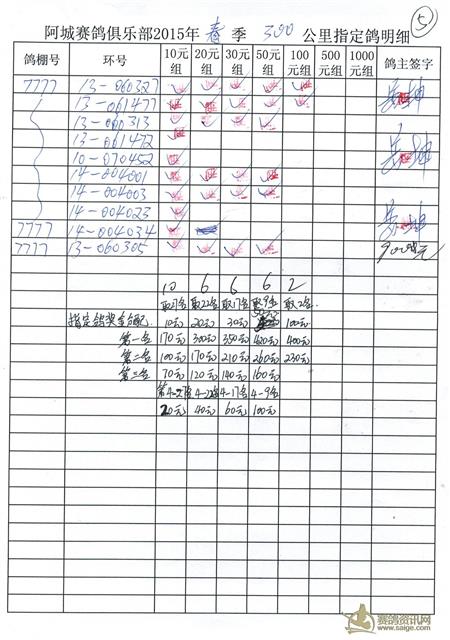 ⑤
阿城赛鸽俱乐部2015年 春 季 300 公里指定鸽明细
鸽棚号 环号 10元组 20元组 30元组 50元组 100元组 500元组 1000元组 鸽主签字
7777 13-060327
13-061477
13-060313
13-061472
10-070452
14-004001
14-004003
14-004023
7777 14-004034
7777 13-060305
10 6 6 6 2
取22名 取17名 取9名 取2名
指定鸽奖金 10元 20元 30元 100元
第一名 170元 300元 350元 420元 400元
第二名 100元 170元 210元 260元 230元
第三名 70元 120元 140元 160元
4-22名 4-17名 4-9名
20元 40元 60元 100元
赛鸽资讯网
www.saige.com